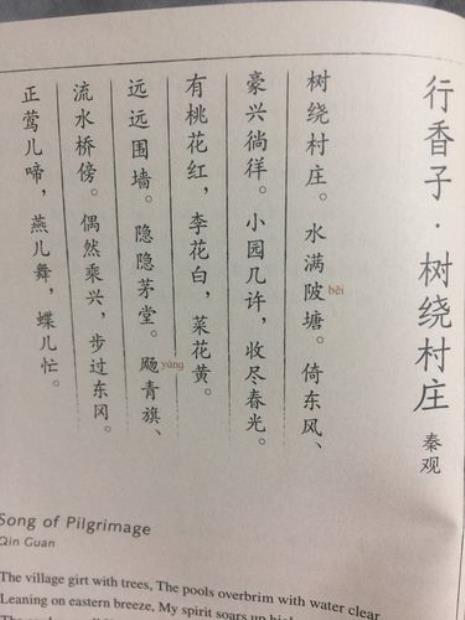 行香子·树绕村庄
秦观
树绕村庄。水满陂bēi塘。倚东风、
豪兴徜徉。小园几许,收尽春光。
有桃花红,李花白,菜花黄。
远远围墙。隐隐茅堂。飏yáng青旗、
流水桥傍。偶然乘兴,步过东冈。
正莺儿啼,燕儿舞,蝶儿忙。
Song of Pilgrimage
Qin Guan
The village girt with trees, The pools overbrim with water clear
Leaning on eastern breeze, My spirit soars up